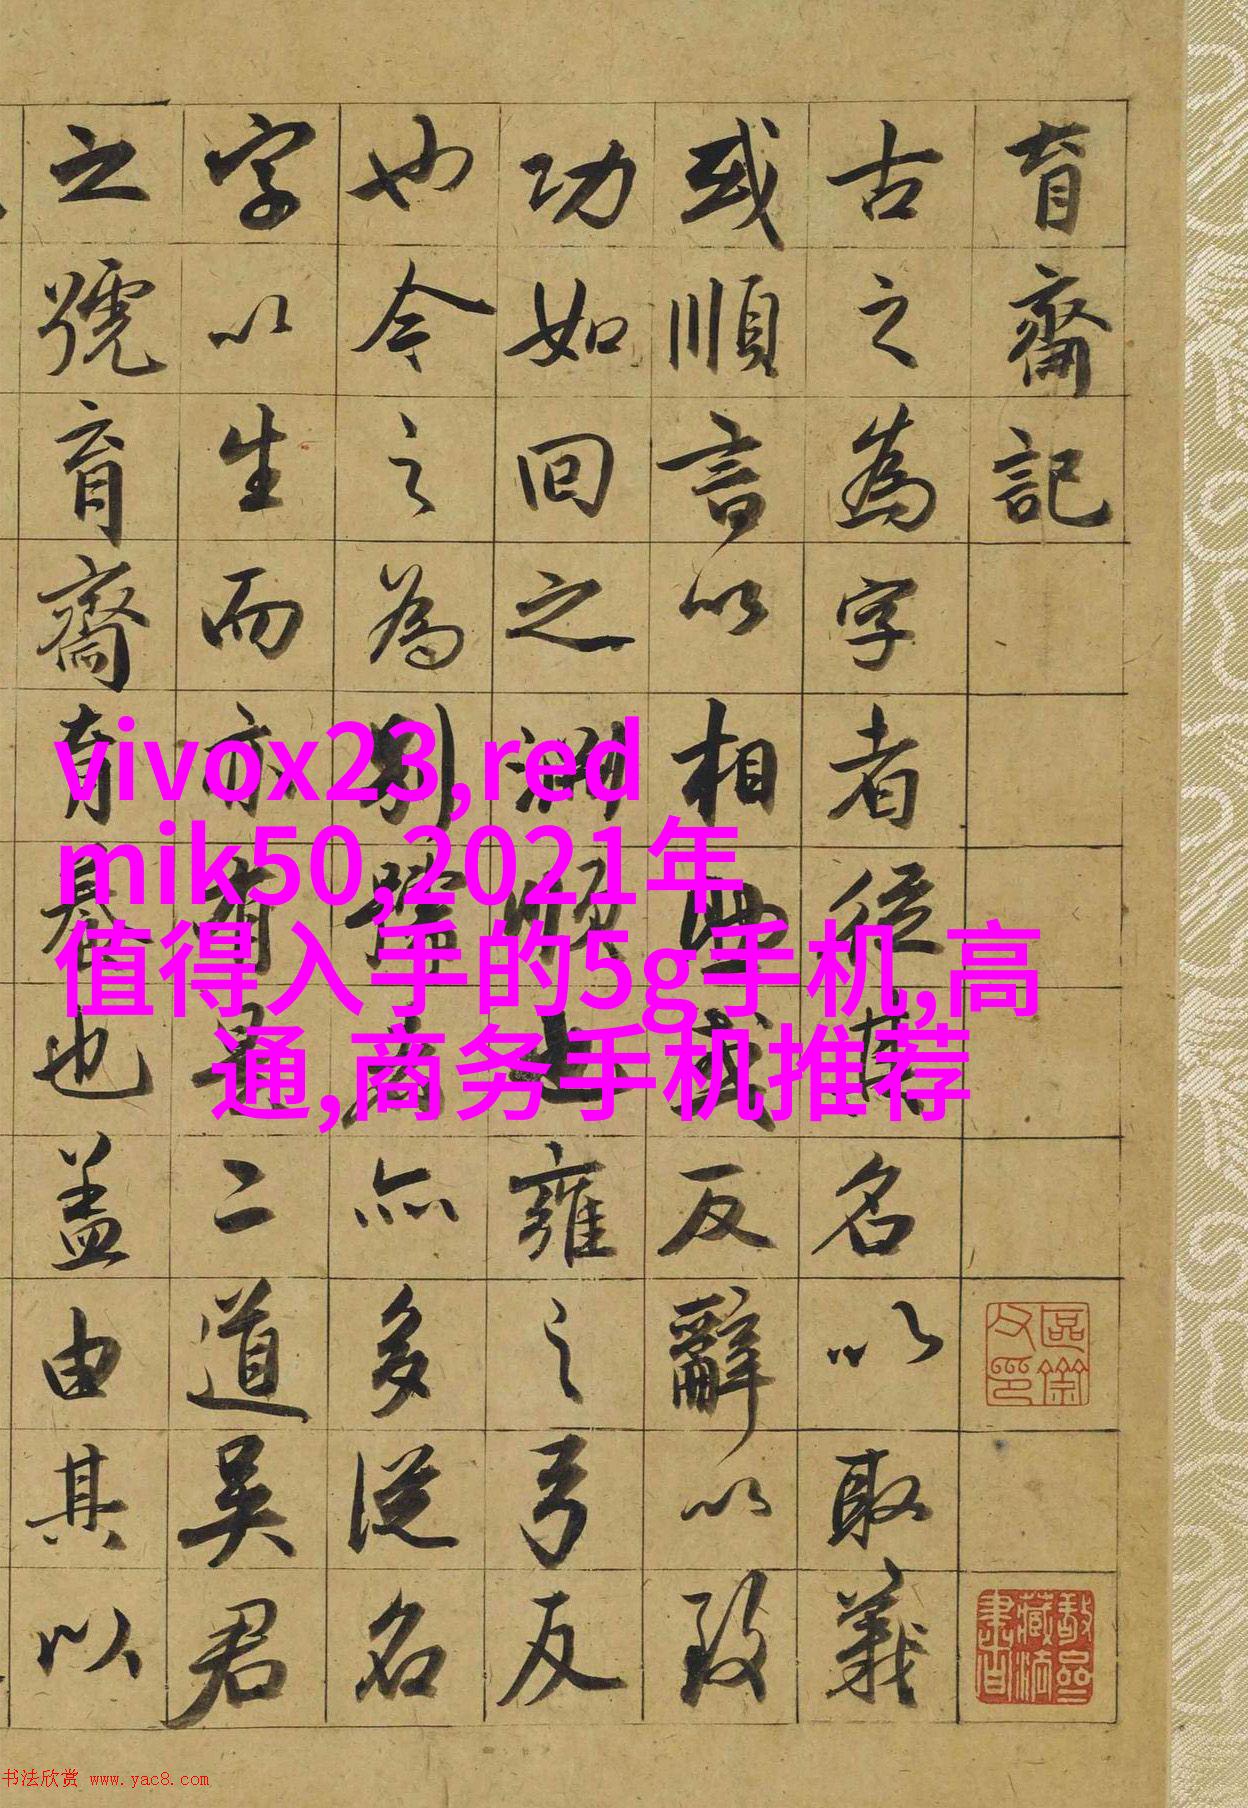 育齋記
古之為字者從其名以取義
或順言以相或反辭以致
功如回之淵順也雍之弓反
也今之為別號者亦多從名
字以生而亦有是二道吳君
之號育齋育養也蓋由其以
vivox23,red
mik50,2021年
值得入手的5g手机,高
通,商务手机推荐
书法欣赏 www.yac8.com